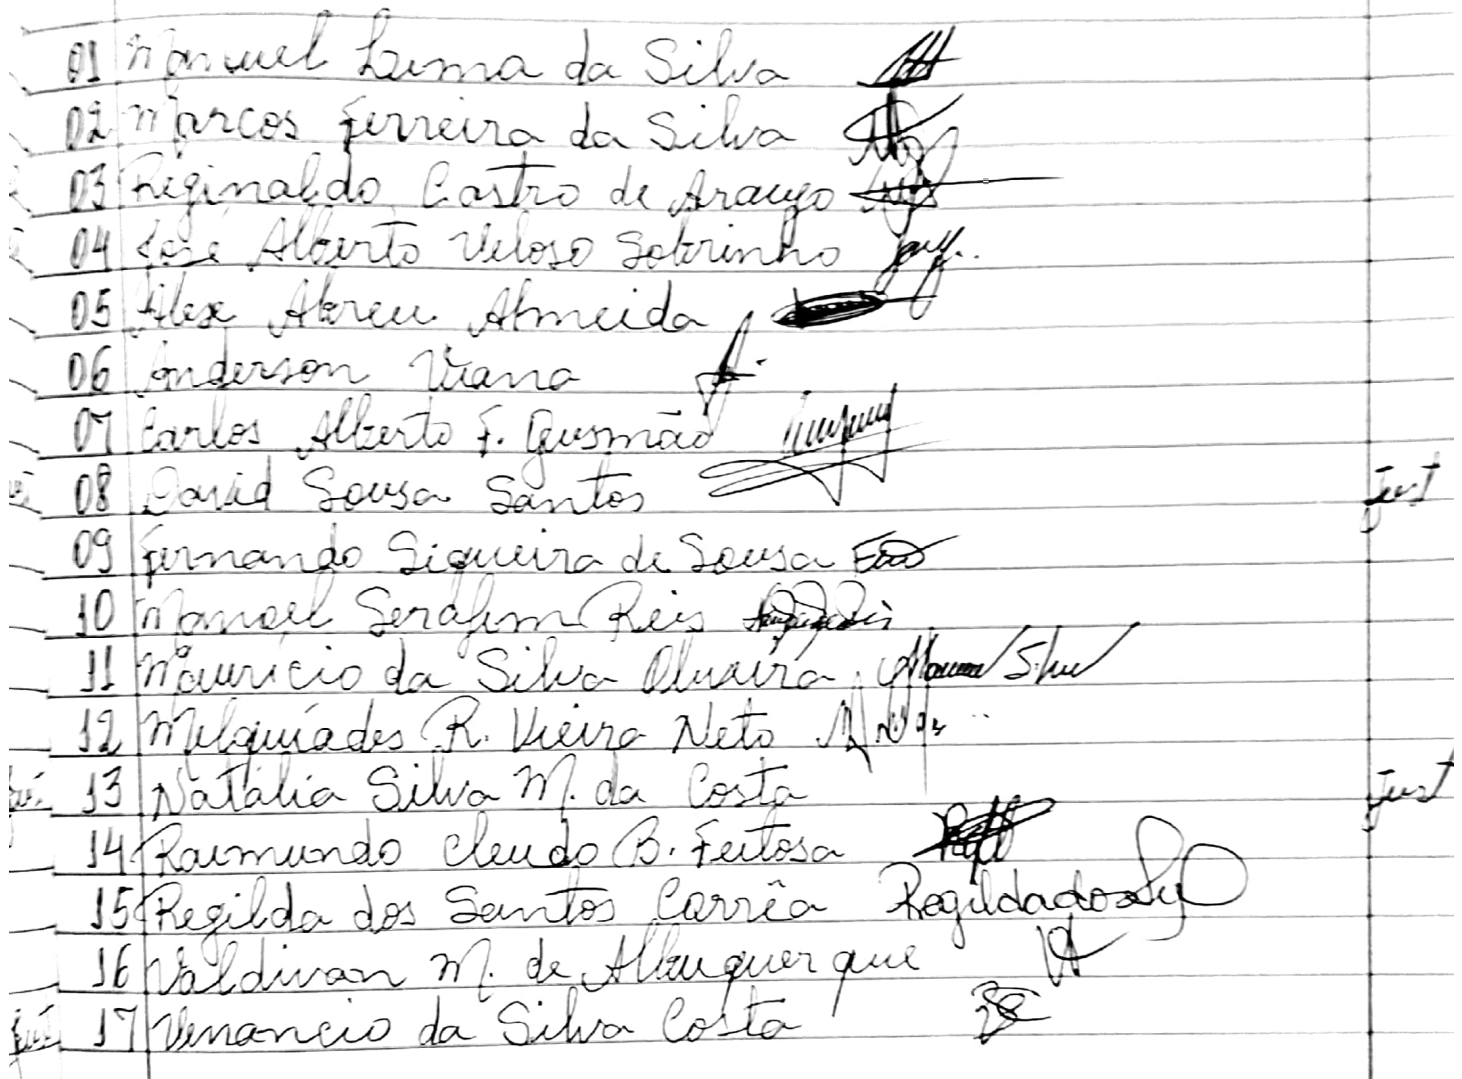 01 Manuel Lima da Silva
02 Marcos Ferreira da Silva
03 Reginaldo Castro de Araujo
04 José Alberto Veloso Sobrinho
05 Alex Abreu Almeida
06 Anderson Viana
07 Carlos Alberto F. Gusmão
08 David Sousa Santos Just
09 Fernando Siqueira de Sousa
10 Manoel Serafim Reis
11 Mauricio da Silva Oliveira
12 Melquíades R. Vieira Neto
13 Natália Silva M. da Costa Just
14 Raimundo Cleudo B. Feitosa
15 Regilda dos Santos Corrêa Regilda dos
16 Valdivan M. de Albuquerque
17 Venancio da Silva Costa